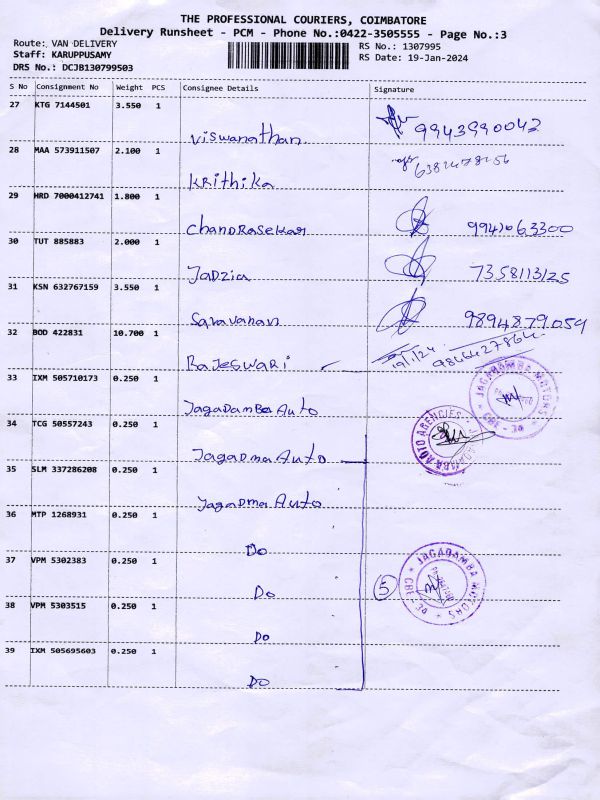 THE PROFESSIONAL COURIERS, COIMBATORE
Delivery Runsheet - PCM - Phone No.:0422-3505555 - Page No.:3
Route: VAN DELIVERY
Staff: KARUPPUSAMY
DRS No.: DCJB130799503
RS No.: 1307995
RS Date: 19-Jan-2024
S No Consignment No Weight PCS Consignee Details Signature
27 KTG 7144501 3.550 1
Viswanathan 9943990042
28 MAA 573911507 2.100 1
Krithika
29 HRD 7000412741 1.800 1
ChandRaSekar
30 TUT 885883 2.000 1
Jadzia 7358113125
31 KSN 632767159 3.550 1
Saravanan 9894879059
32 BOD 422831 10.700 1
RajesWaRi 19/1/24 9844427864
33 IXM 505710173 0.250 1
JagaDamBa Auto
JAGADAMBA MOTORS
CBE
34 TCG 50557243 0.250 1
JagaDma Auto
AUTO AGENCIES
35 SLM 337286208 0.250 1
JagaDma Auto
36 MTP 1268931 0.250 1
Do
37 VPM 5302383 0.250 1
Do 5
JAGADAMBA MOTORS
CBE
38 VPM 5303515 0.250 1
Do
39 IXM 505695603 0.250 1
Do